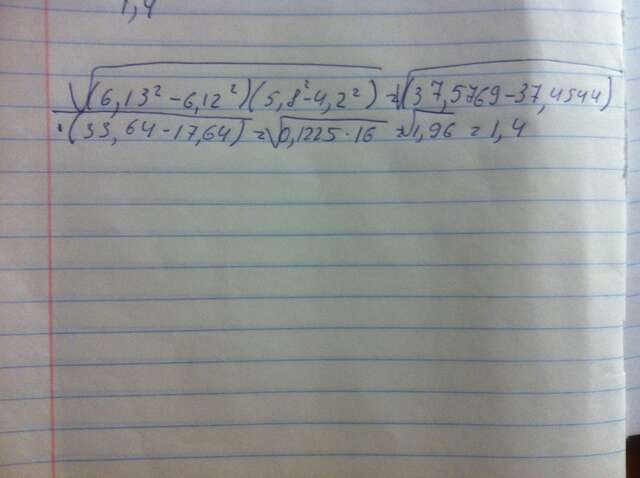 1,4
√(6,13² - 6,12²)(5,8² - 4,2²) = √(37,5769 - 37,4544)
· (33,64 - 17,64) = √0,1225 · 16 = √1,96 = 1,4